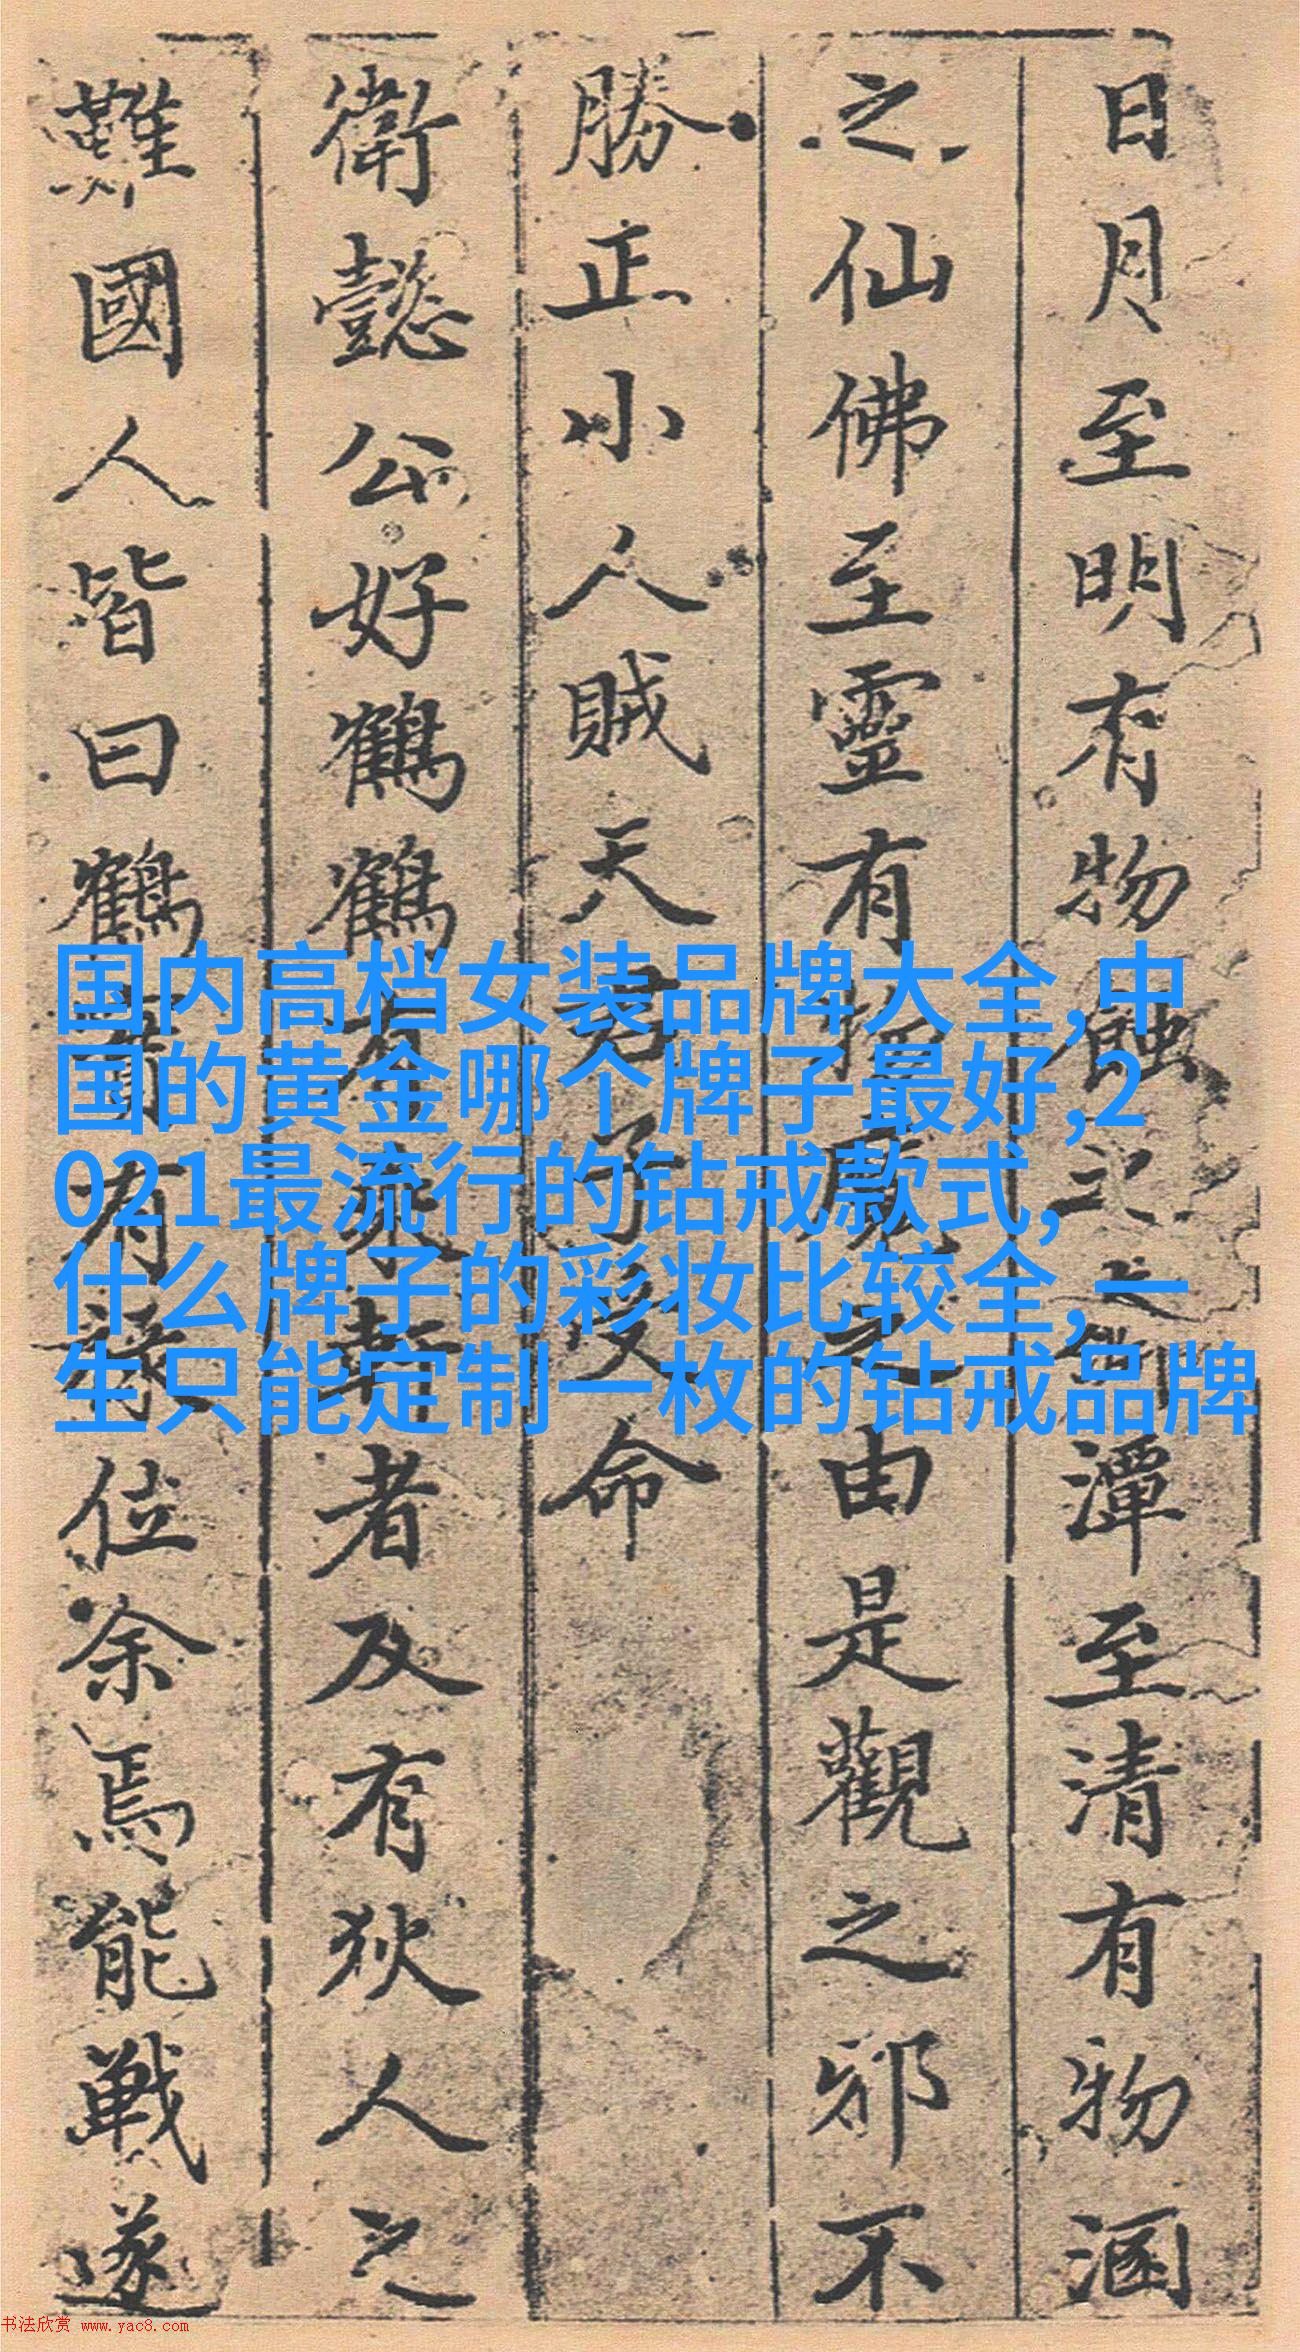 日月至明有物蝕之
潭至清有物涵
之仙佛至靈有
由是觀之邪不
勝正小人賊天君子受命
衛懿公好鶴鶴有乘軒者及有狄人之
難國人皆曰鶴實有祿位余焉能戰遂
国内高档女装品牌大全,中
国的黄金哪个牌子最好,2
021最流行的钻戒款式,
什么牌子的彩妆比较全,一
生只能定制一枚的钻戒品牌
书法欣赏 www.yac8.com